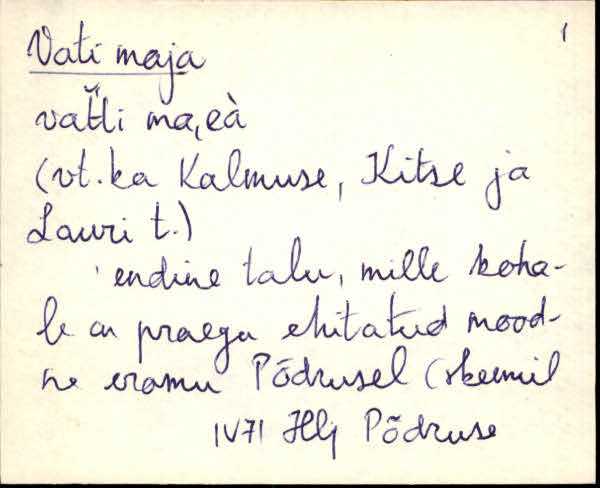 1
Vati maja
vat̆t̆li ma,eà
(vt. ka Kalmuse, Kitse ja
Lauri t.)
endine talu, mille koha-
le on praegu ehitatud mood-
ne eramu Põdrusel (skeemil
IV71 Hlj Põdruse